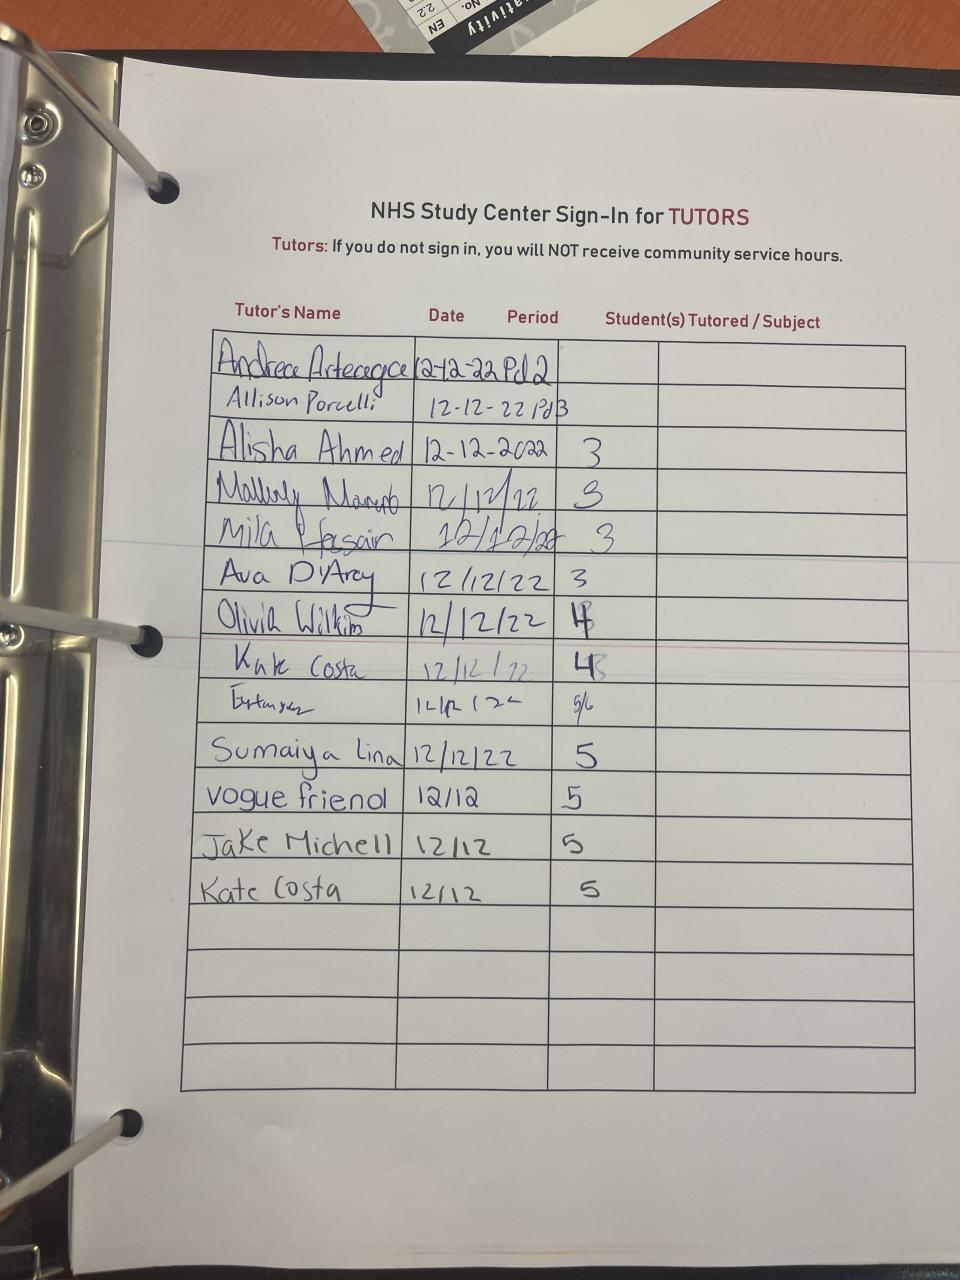 EN
2.2
No.
ativity
NHS Study Center Sign-In for TUTORS
Tutors: If you do not sign in, you will NOT receive community service hours.
Tutor's Name Date Period Student(s) Tutored / Subject
Andrea Arteaga 12-12-22 Pd 2
Allison Porcelli 12-12-22 Pd3
Alisha Ahmed 12-12-2022 3
12/12/22 3
Mila 12/12/22 3
Ava D'Arcy 12/12/22 3
Olivia 12/12/22 4
Kate Costa 12/12/22 4
5/6
Sumaiya Lina 12/12/22 5
vogue friend 12/12 5
Jake Michell 12/12 5
Kate Costa 12/12 5